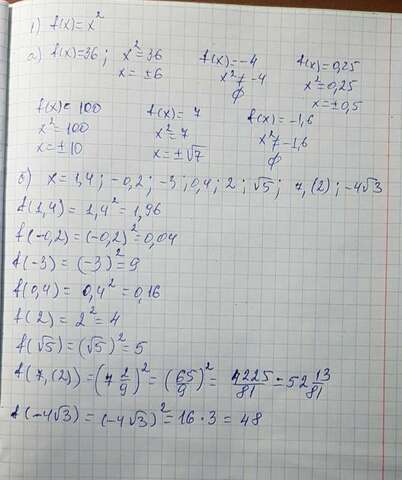 1) f(x)=x²
а) f(x)=36; x²=36 f(x)=-4 f(x)=0,25
x=±6 x²≠-4 x²=0,25
∅ x=±0,5
f(x)=100 f(x)=7 f(x)=-1,6
x²=100 x²=7 x²≠-1,6
x=±10 x=±√7 ∅
б) x=1,4; -0,2; -3; 0,4; 2; √5; 7,(2); -4√3
f(1,4)=1,4²=1,96
f(-0,2)=(-0,2)²=0,04
f(-3)=(-3)²=9
f(0,4)=0,4²=0,16
f(2)=2²=4
f(√5)=(√5)²=5
f(7,(2))=(7 2/9)²=(65/9)²=4225/81=52 13/81
f(-4√3)=(-4√3)²=16·3=48